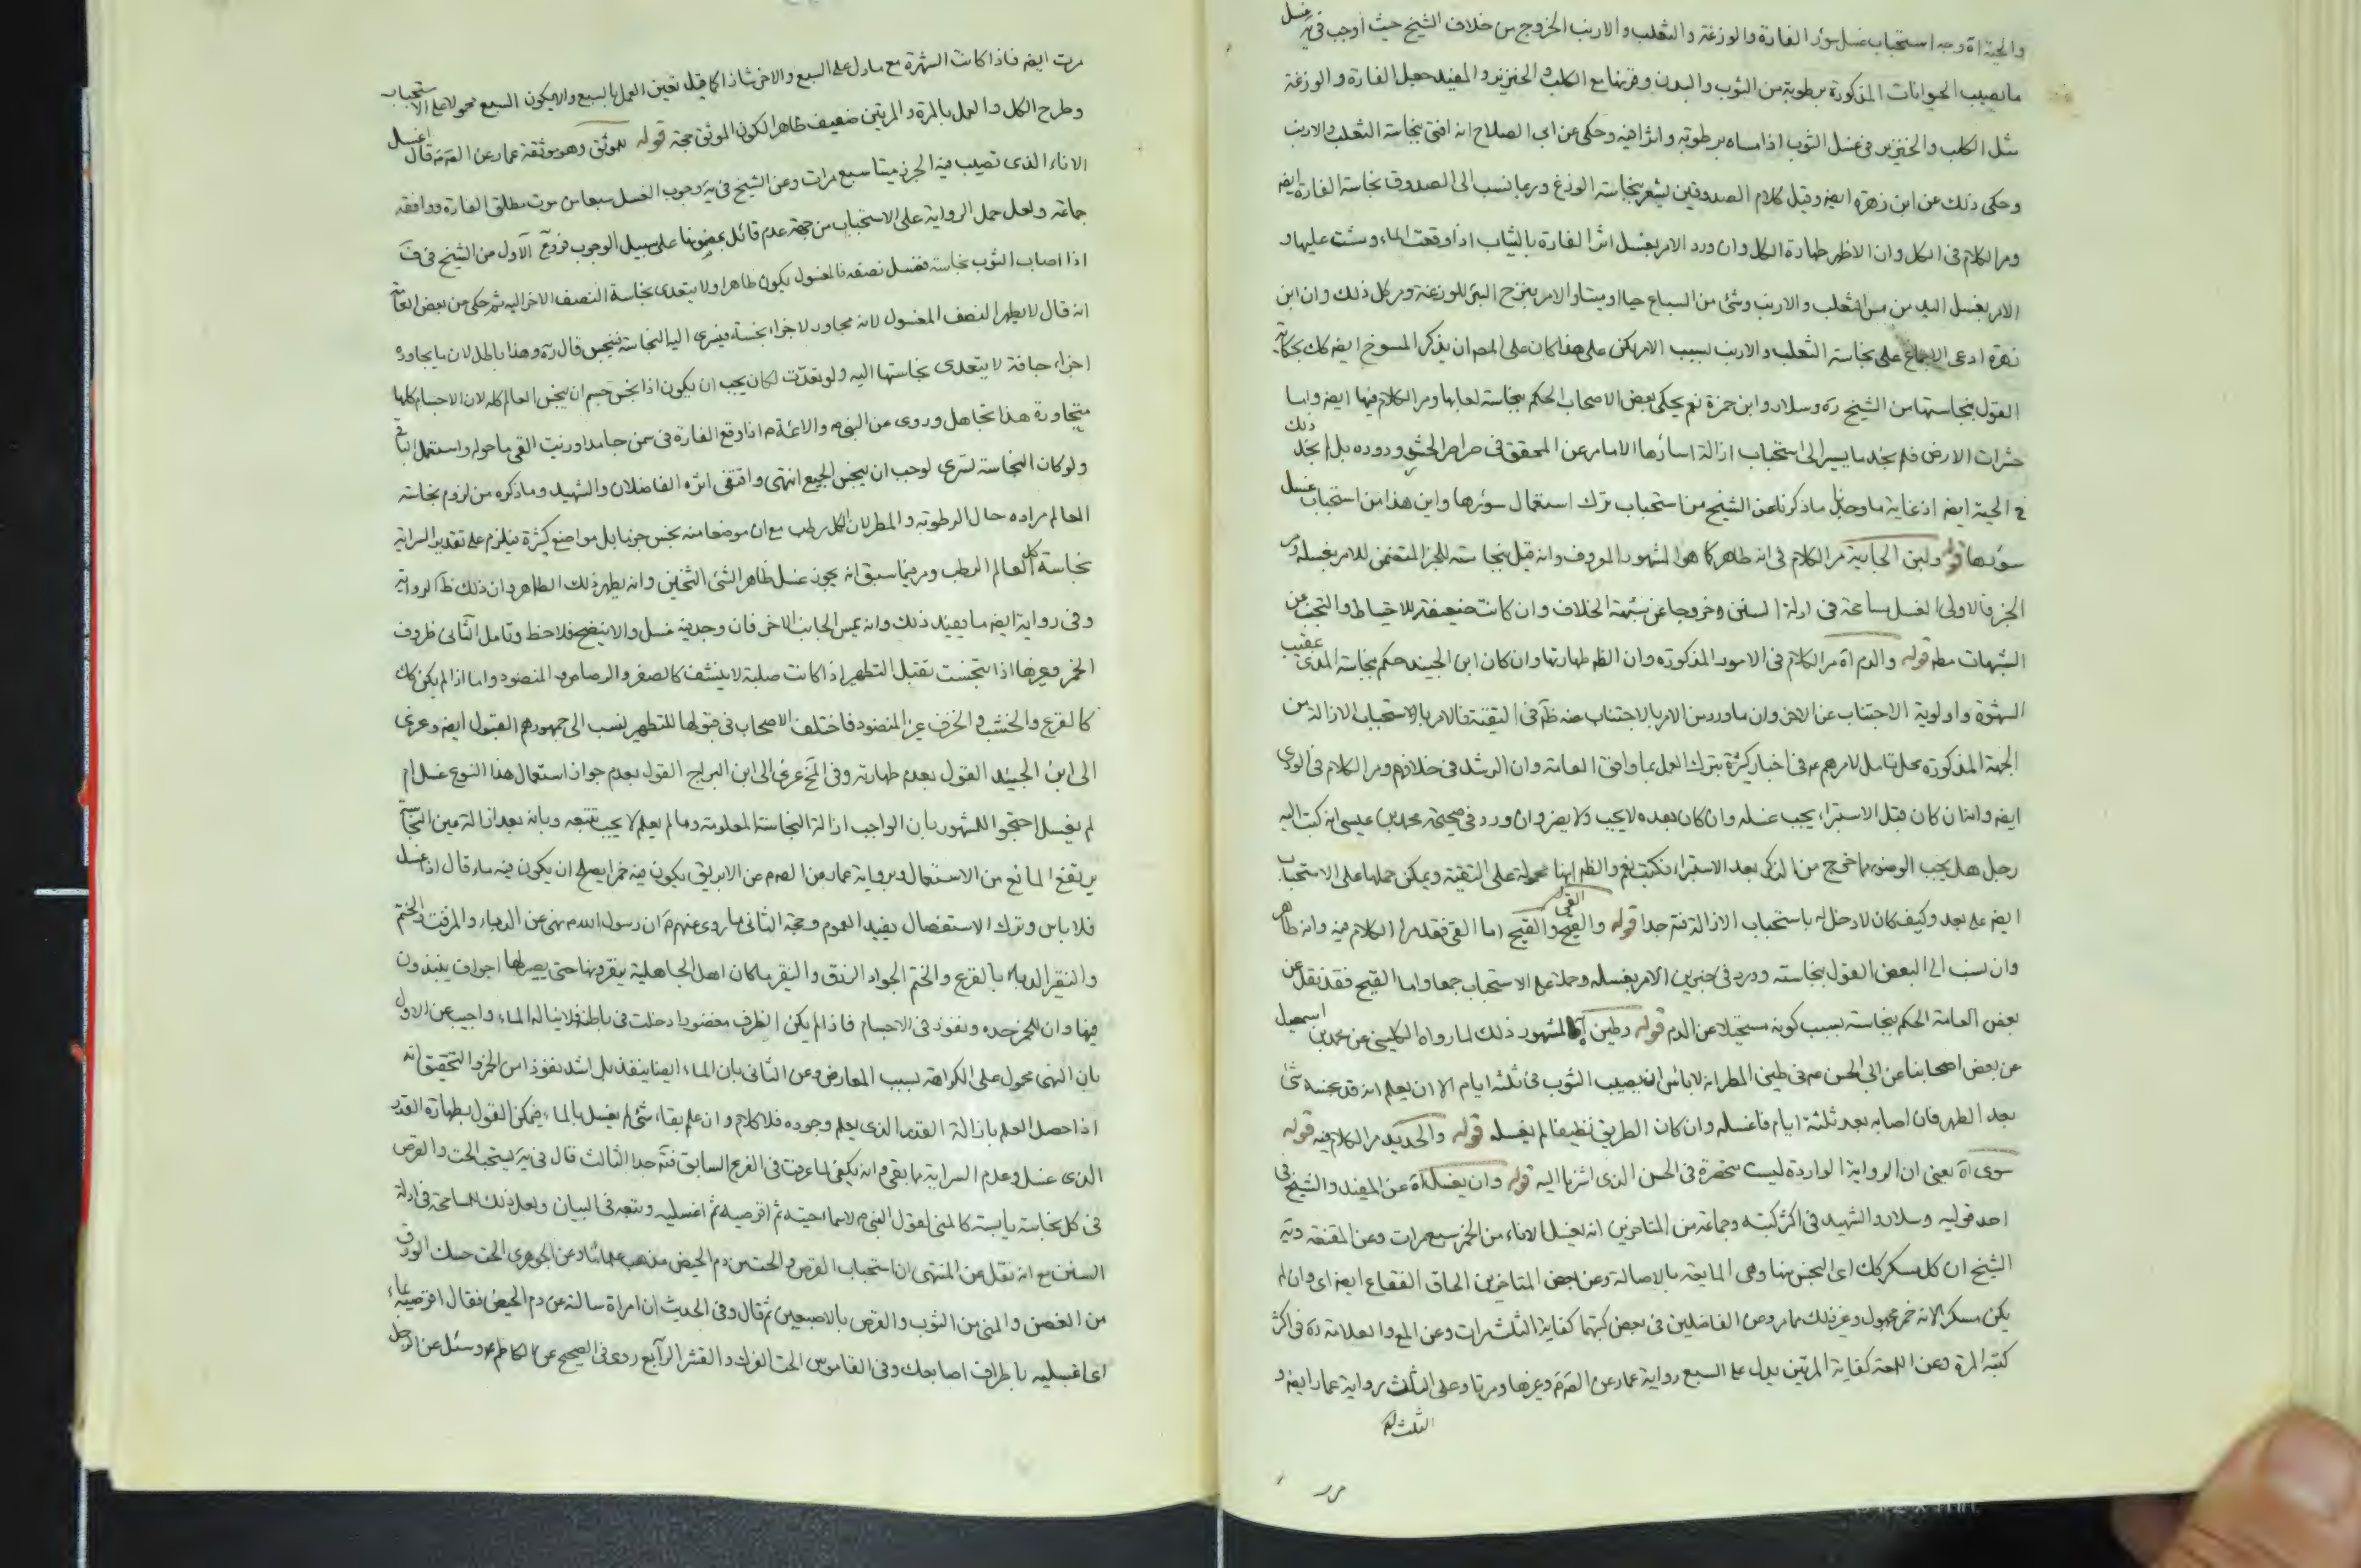 والحية اه وجه استحباب غسل سؤر الفارة والوزغة والثعلب والارنب الخروج من خلاف الشيخ حيث أوجب في يه غسل
ما تصيب الحيوانات المذكورة برطوبة من الثوب والبدن وقرنها مع الكلب والخنزير والمفيد جعل الفارة والوزغة
مثل الكلب والخنزير في غسل الثوب اذا مساه برطوبة واثرا فيه وحكى عن ابي الصلاح انه افتى بنجاسة الثعلب والارنب
وحكى ذلك عن ابن زهرة ايضه وقيل كلام الصدوقين يشعر بنجاسة الوزغ وربما نسب الى الصدوق نجاسة الفارة ايضه
ومر الكلام في الكل وان الاظهر طهارة الكل وان ورد الامر بغسل اثر الفارة بالثياب اذا وقعت الماء ومشت عليها و
الامر بغسل اليد من مس الثعلب والارنب وشئ من السباع حيا او ميتا والامر بنزح البئر للوزغة ومر كل ذلك وان ابن
زهرة ادعى الاجماع على نجاسة الثعلب والارنب لسبب الامر لكن على هذا كان على المصه ان يذكر المسوخ ايضه كك لحكاية
القول بنجاستها من الشيخ ره وسلار وابن حمزة نعم يحكى بعض الاصحاب الحكم بنجاسة لعابها ومر الكلام فيها ايضه واما
حشرات الارض فلم نجد ما يسير الى استحباب ازالة اسأرها الا ما مر عن المحقق في وروده بل لم نجد ذلك
في الحية ايضه اذ غاية ما وجدنا ما ذكرنا عن الشيخ من استحباب ترك استعمال سؤرها واين هذا من استحباب غسل
سؤرها قوله ولبن الجارية مر الكلام في انه طاهر كما هو المشهور المعروف وانه قيل بنجاسته للخبر المتضمن للامر بغسله ومر
الخبر فالاولى الغسل مسامحة في ادلة السنن وخروجا عن شبهة الخلاف وان كانت ضعيفة للاحتياط والتجنب عن
الشبهات مطه قوله والدم اه مر الكلام في الامور المذكورة وان الظه طهارتها وان كان ابن الجنيد حكم بنجاسة المذى عقيب
الشهوة واولوية الاجتناب عن الاخر وان ما ورد من الامر بالاجتناب عنه ظه في التقية فالامر بالاستحباب الازالة من
الجهة المذكورة محل تامل لامرهم عه في اخبار كثيرة بترك العمل بما وافق العامة وان الرشد في خلافهم ومر الكلام في الودى
ايضه وانه ان كان قبل الاستبراء يجب غسله وان كان بعده لا يجب ولا يضر وان ورد في صحيحة محمد بن عيسى انه كتب اليه
رجل هل يجب الوضوء مما خرج من الذكر بعد الاستبراء فكتب نعم والظه انها محمولة على التقية ويمكن حملها على الاستحباب
ايضه على بعد وكيف كان لا دخل له باستحباب الازالة فته جدا قوله والقيح والقئ اما القئ فقد مر الكلام فيه وانه طاهر
وان نسب الى البعض القول بنجاسته وورد في خبرين الامر بغسله وحملا على الاستحباب جمعا واما القيح فقد نقل عن
بعض العامة الحكم بنجاسته بسبب كونه مستحيلا عن الدم قوله وطين اه المشهور ذلك لما رواه الكليني عن محمد بن اسمعيل
عن بعض اصحابنا عن ابي الحسن عه في طين المطر انه لا بأس ان يصيب الثوب في ثلثة ايام الا ان يعلم انه قد نجسه شئ
بعد المطر فان اصابه بعد ثلثة ايام فاغسله وان كان الطريق نظيفا لم يغسله قوله والحديد مر الكلام فيه قوله
سوى اه يعنى ان الرواية الواردة ليست منحصرة في الحسن الذى اشرنا اليه قوله وان يغسل اه عن المفيد والشيخ في
احد قوليه وسلار والشهيد في اكثر كتبه وجماعة من المتاخرين انه يغسل الاناء من الخمر سبع مرات وعن المقنعة ويه
الشيخ ان كل مسكر كك اى النجس منها وهى المايعة بالاصالة وعن بعض المتاخرين الحاق الفقاع ايضه اى وان لم
يكن مسكرا لانه خمر مجهول وغير ذلك مما مر وعن الفاضلين في بعض كتبهما كفاية الثلث مرات وعن المع والعلامة ره في اكثر
كتبه المرة وعن اللمعة كفاية المرتين يدل على السبع رواية عمار عن الصه ع وغيرها ومرتا وعلى الثلث رواية عمار ايضه و
الثلث له
مرت ايضه فاذا كانت الشهرة مع ما دل على السبع والاخر شاذا كما قيل تعين العمل بالسبع والا يكون السبع محمولا على الاستحباب
وطرح الكل والعمل بالمرة والمرتين ضعيف ظاهرا لكون الموثق حجة قوله للموثق وهو موثقة عمار عن الصه ع قال اغسل
الاناء الذى تصيب فيه الجرذ ميتا سبع مرات وعن الشيخ في يه وجوب الغسل سبعا من موت مطلق الفارة ووافقه
جماعة ولعل حمل الرواية على الاستحباب من جهة عدم قائل بمضمونها على سبيل الوجوب فروع الاول من الشيخ في ف
اذا اصاب الثوب نجاسة فغسل نصفه فالمغسول يكون طاهرا ولا يتعدى نجاسة النصف الاخر اليه ثم حكى من بعض العامة
انه قال لا يطهر النصف المغسول لانه مجاور لاجزاء نجسة فيسرى اليه النجاسة فينجس قال ره وهذا باطل لان ما يجاوره
اجزاء جافة لا يتعدى نجاستها اليه ولو تعدت لكان يجب ان يكون اذا نجس جسم ان ينجس العالم كله لان الاجسام كلها
متجاورة هذا تجاهل وروى عن النبي ص والائمة ع انه اذا وقع الفارة في سمن جامد او زيت القى ما حوله واستعمل الباقي
ولو كان النجاسة تسرى لوجب ان ينجس الجميع انتهى واقتفى اثره الفاضلان والشهيد وما ذكره من لزوم نجاسة
العالم مراده حال الرطوبة والمطر لان الكل رطب مع ان موضعا منه نجس جزما بل مواضع كثيرة فيلزم على تقدير السراية
نجاسة كل العالم الرطب ومر فيما سبق انه يجوز غسل ظاهر الشئ الثخين وانه يطهر ذلك الظاهر وان ذلك ظه الرواية
وفي رواية ايضه ما يفيد ذلك وانه يمس الجانب الاخر فان وجد فيه غسل والا ينضح فلاحظ وتامل الثاني ظروف
الخمر وغيرها اذا تنجست تقبل التطهير اذا كانت صلبة لا ينشف كالصفر والرصاص والمنضود واما اذا لم يكن كك
كالقرع والخشب والخزف غير المنضود فاختلف الاصحاب في قبولها للتطهير نسب الى جمهورهم القبول ايضه وعزى
الى ابن الجنيد القول بعدم طهارته وفي المخ عزى الى ابن البراج القول بعدم جواز استعمال هذا النوع غسل ام
لم يغسل احتجوا للمشهور بان الواجب ازالة النجاسة المعلومة وما لم يعلم لا يجب تتبعه وبانه بعد ازالة عين النجاسة
يرتفع المانع من الاستعمال وبرواية عمار عن الصه ع عن الابريق يكون فيه خمر ايصلح ان يكون فيه ماء قال اذا غسل
فلا باس وترك الاستفصال يفيد العموم وحجة الثاني ما روى عنهم ع ان رسول الله ص نهى عن الدباء والمزفت والحنتم
والنقير الدباء بالقرع والختم الجواد الزرق والنقير ما كان اهل الجاهلية ينقرونها حتى يصير لها اجواف ينبذون
فيها وان للخمر حده ونفوذ في الاجسام فاذا لم يكن الظرف مغضورا دخلت في باطنه فلا يناله الماء واجيب عن الاول
بان النهى محمول على الكراهة لسبب المعارض وعن الثاني بان الماء ايضا ينفذ بل اشد نفوذا من الخمر والتحقيق انه
اذا حصل العلم بازالة القدر الذى يعلم وجوده فلا كلام وان علم بقاء شئ لم يغسل بالماء فيمكن القول بطهارة القدر
الذى غسل وعدم السراية بما بقى وانه يكفى لما عرفت في الفرع السابق فته جدا الثالث قال في يه يستحب الحت والقرص
في كل نجاسة يابسة كالمنى لقول النبي ص لاسماء حتيه ثم اقرصيه ثم اغسليه وتبعه في البيان ولعل ذلك للمسامحة في ادلة
السنن مع انه نقل عن المنتهى ان استحباب القرص والحت من دم الحيض مذهب علمائنا وعن الجوهرى الحت حتك الورق
من الغصن والمنى من الثوب والقرص بالاصبعين ثم قال وفي الحديث ان امراة سالته عن دم الحيض فقال اقرصيه بماء
اى اغسليه باطراف اصابعك وفي القاموس الحت الفرك والقشر الرابع روى في الصحيح عن الكاظم عه وسئل عن الرجل